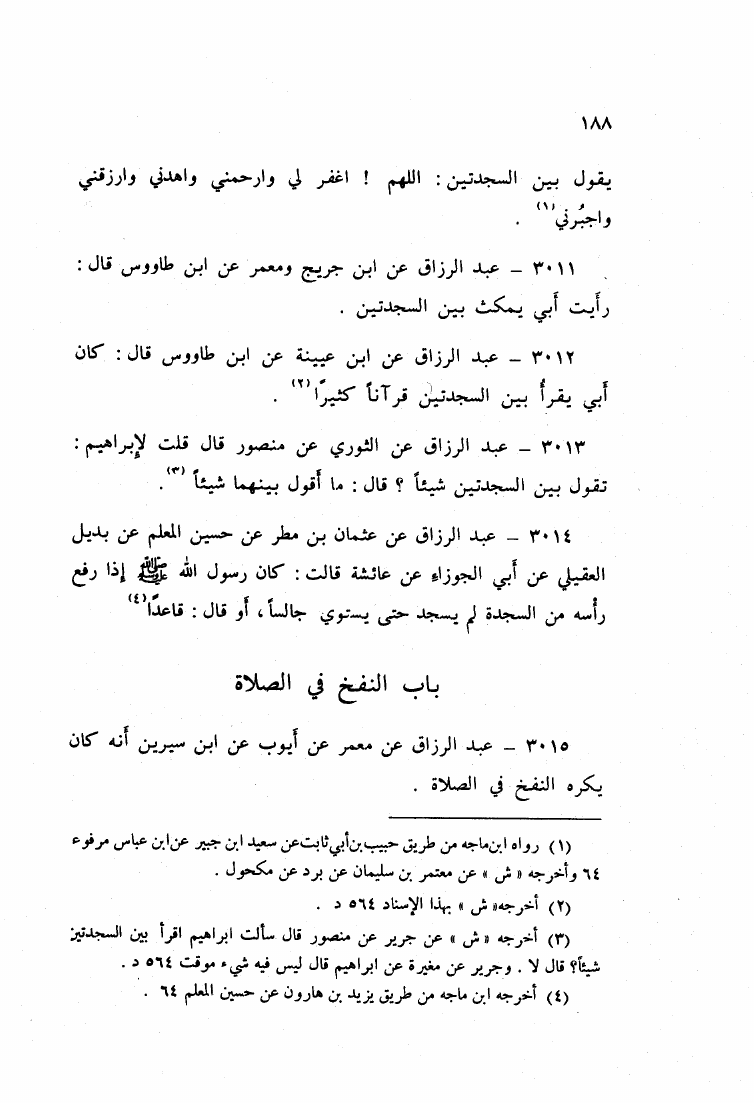 ١٨٨
يقول بين السجدتين : اللهم ! اغفر لي وارحمني واهدني وارزقني
واجبُرني (١) .
٣٠١١ – عبد الرزاق عن ابن جريج ومعمر عن ابن طاووس قال :
رأيت أبي يمكث بين السجدتين .
٣٠١٢ – عبد الرزاق عن ابن عيينة عن ابن طاووس قال : كان
أبي يقرأُ بين السجدتين قرآناً كثيرًا (٢) .
٣٠١٣ – عبد الرزاق عن الثوري عن منصور قال قلت لإبراهيم :
تقول بين السجدتين شيئاً ؟ قال : ما أقول بينهما شيئاً (٣) .
٣٠١٤ – عبد الرزاق عن عثمان بن مطر عن حسين المعلم عن بديل
العقيلي عن أبي الجوزاء عن عائشة قالت : كان رسول الله ﷺ إذا رفع
رأسه من السجدة لم يسجد حتى يستوي جالساً ، أو قال : قاعدًا (٤)
باب النفخ في الصلاة
٣٠١٥ – عبد الرزاق عن معمر عن أيوب عن ابن سيرين أنه كان
يكره النفخ في الصلاة .
(١) رواه ابن ماجه من طريق حبيب بن أبي ثابت عن سعيد ابن جبير عن ابن عباس مرفوء
٦٤ وأخرجه « ش » عن معتمر بن سليمان عن برد عن مكحول .
(٢) أخرجه « ش » بهذا الإسناد ٥٦٤ د .
(٣) أخرجه « ش » عن جرير عن منصور قال سألت ابراهيم اقرأ بين السجدتين
شيئاً؟ قال لا . وجرير عن مغيرة عن ابراهيم قال ليس فيه شيء موقت ٥٦٤ د .
(٤) أخرجه ابن ماجه من طريق يزيد بن هارون عن حسين المعلم ٦٤ .